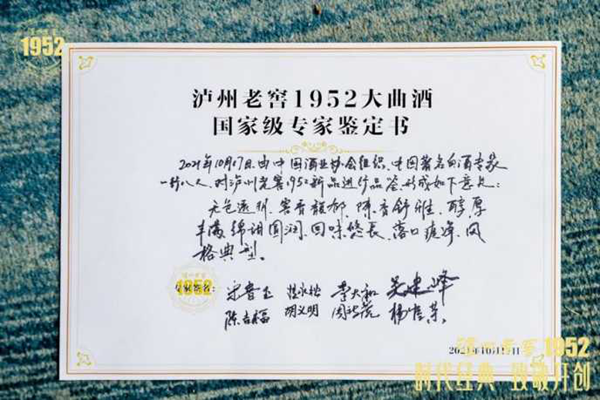 1952
泸州老窖1952大曲酒
国家级专家鉴定书
2021年10月17日,由中国酒业协会组织,中国著名白酒专家
一行八人,对泸州老窖1952新品进行品鉴,形成如下意见:
无色透明、窖香馥郁、陈香舒雅、醇厚
丰满、绵甜圆润、回味悠长、落口爽净、风
格典型。
1952
专家签名:
沈怡方 李大和 吴建峰
陈吉福 胡义明 杨官荣
2021年10月 日
泸州老窖1952
时代经典 致敬开创